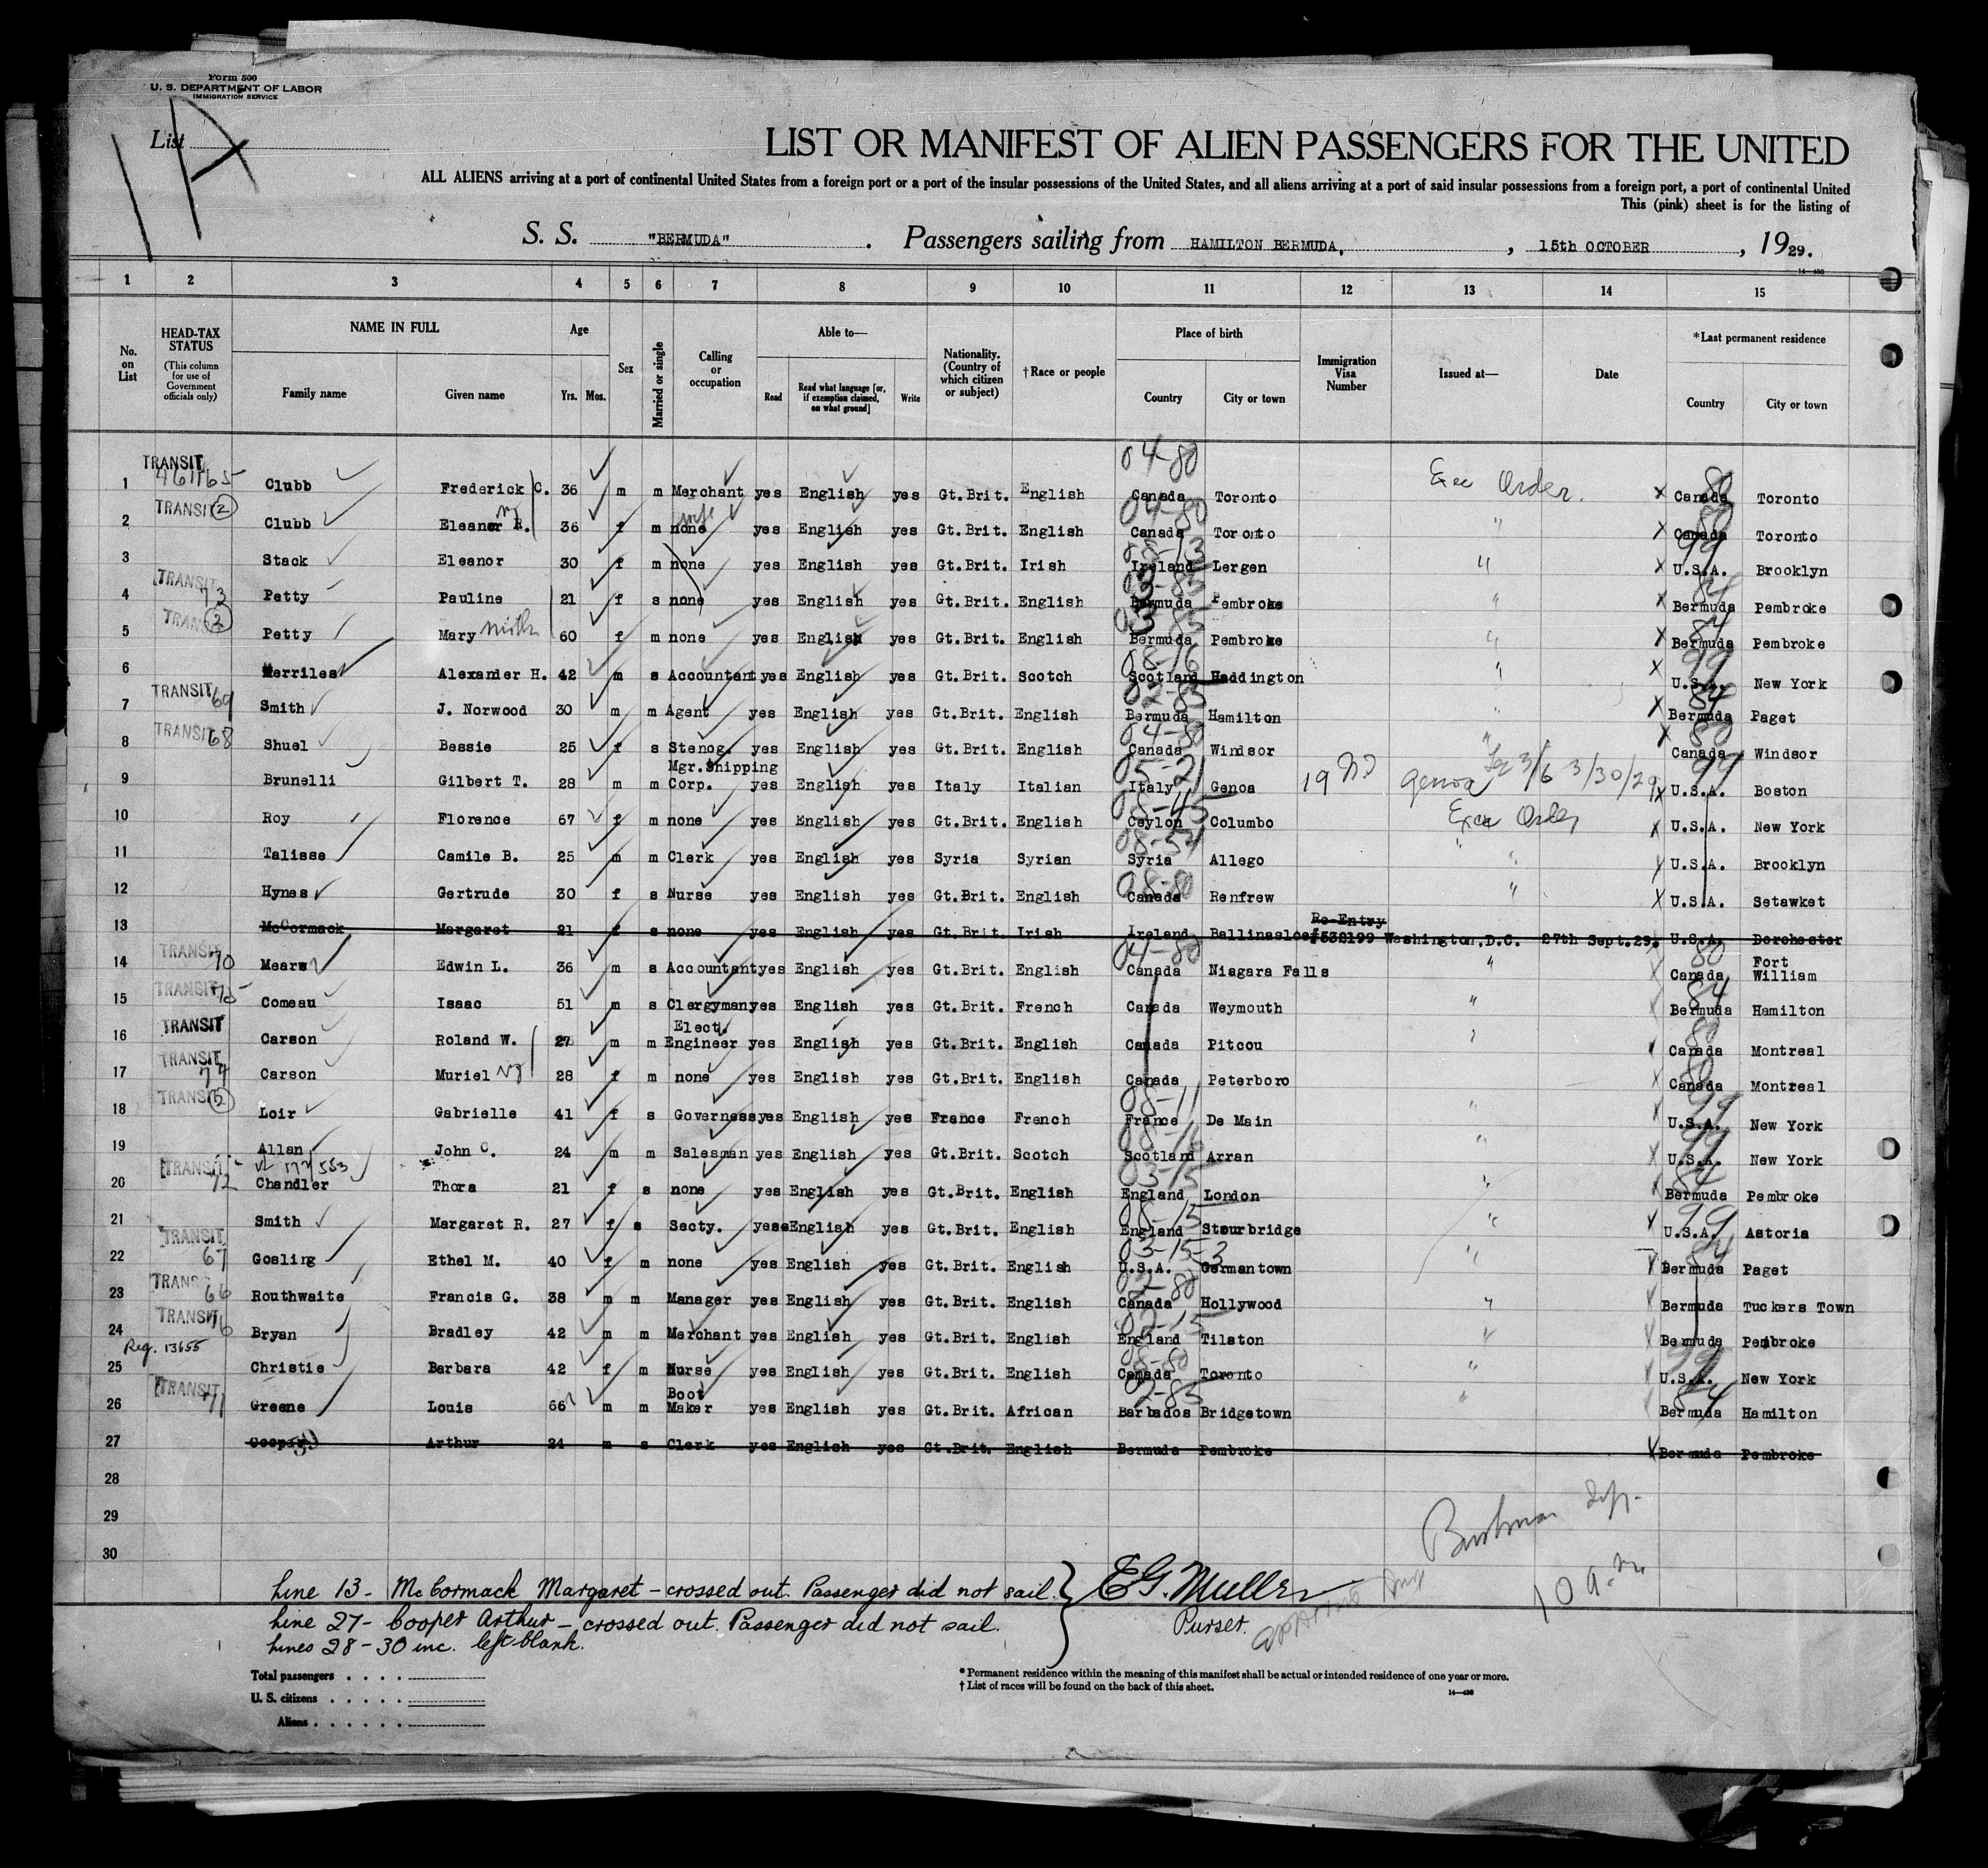 Form 500
U. S. DEPARTMENT OF LABOR
IMMIGRATION SERVICE
List 1A
LIST OR MANIFEST OF ALIEN PASSENGERS FOR THE UNITED
ALL ALIENS arriving at a port of continental United States from a foreign port or a port of the insular possessions of the United States, and all aliens arriving at a port of said insular possessions from a foreign port, a port of continental United
This (pink) sheet is for the listing of
S. S. "BERMUDA" . Passengers sailing from HAMILTON BERMUDA, , 15th OCTOBER , 1929.
1 2 3 4 5 6 7 8 9 10 11 12 13 14 15
No. on List
HEAD-TAX STATUS (This column for use of Government officials only)
NAME IN FULL Family name Given name
Age Yrs. Mos.
Sex
Married or single
Calling or occupation
Able to— Read Read what language [or, if exemption claimed, on what ground] Write
Nationality. (Country of which citizen or subject)
†Race or people
Place of birth Country City or town
Immigration Visa Number
Issued at—
Date
*Last permanent residence Country City or town
TRANSIT 04-80
1 Clubb Frederick C. 36 m m Merchant yes English yes Gt.Brit. English Canada Toronto Exec Order. X Canada Toronto
TRANSIT 2 wife 04-80
2 Clubb Eleanor R. 36 f m none yes English yes Gt.Brit. English Canada Toronto " X Canada Toronto
3 Stack Eleanor 30 f m none yes English yes Gt.Brit. Irish Ireland Lergen " X U.S.A. Brooklyn
TRANSIT 73
4 Petty Pauline 21 f s none yes English yes Gt.Brit. English Bermuda Pembroke " X Bermuda Pembroke
5 Petty Mary 60 f m none yes English yes Gt.Brit. English Bermuda Pembroke " X Bermuda Pembroke
6 Merriles Alexander H. 42 m s Accountant yes English yes Gt.Brit. Scotch Scotland Haddington " X U.S.A. New York
TRANSIT 69
7 Smith J. Norwood 30 m m Agent yes English yes Gt.Brit. English Bermuda Hamilton " X Bermuda Paget
TRANSIT 68
8 Shuel Bessie 25 f s Stenog. yes English yes Gt.Brit. English Canada Windsor " X Canada Windsor
Mgr.Shipping
9 Brunelli Gilbert T. 28 m m Corp. yes English yes Italy Italian Italy Genoa 19 Genoa 3/30/29 X U.S.A. Boston
10 Roy Florence 67 f m none yes English yes Gt.Brit. English Ceylon Columbo Exec Order X U.S.A. New York
11 Talisse Camile B. 25 m m Clerk yes English yes Syria Syrian Syria Allego " X U.S.A. Brooklyn
12 Hynes Gertrude 30 f s Nurse yes English yes Gt.Brit. English Canada Renfrew " X U.S.A. Setawket
Re-Entry
13 McCormack Margaret 21 f s none yes English yes Gt.Brit. Irish Ireland Ballinasloe #532199 Washington.D.C. 27th Sept.29. U.S.A. Dorchester
TRANSIT 70 Fort
14 Mears Edwin L. 36 m s Accountant yes English yes Gt.Brit. English Canada Niagara Falls " X Canada William
TRANSIT 75
15 Comeau Isaac 51 m s Clergyman yes English yes Gt.Brit. French Canada Weymouth " Bermuda Hamilton
TRANSIT Elect.
16 Carson Roland W. 27 m m Engineer yes English yes Gt.Brit. English Canada Pitcou Canada Montreal
TRANSIT 74
17 Carson Muriel 28 f m none yes English yes Gt.Brit. English Canada Peterboro X Canada Montreal
TRANSIT 08-11
18 Loir Gabrielle 41 f s Governess yes English yes France French France De Main " X U.S.A. New York
19 Allan John C. 24 m m Salesman yes English yes Gt.Brit. Scotch Scotland Arran " X U.S.A. New York
TRANSIT 72
20 Chandler Thora 21 f s none yes English yes Gt.Brit. English England London " X Bermuda Pembroke
21 Smith Margaret R. 27 f s Secty. yes English yes Gt.Brit. English England Stourbridge " X U.S.A. Astoria
TRANSIT 67
22 Gosling Ethel M. 40 f m none yes English yes Gt.Brit. English U.S.A. Germantown " Bermuda Paget
TRANSIT 66
23 Routhwaite Francis G. 38 m m Manager yes English yes Gt.Brit. English Canada Hollywood " Bermuda Tuckers Town
TRANSIT 76
24 Bryan Bradley 42 m m Merchant yes English yes Gt.Brit. English England Tilston " Bermuda Pembroke
Reg. 13655
25 Christie Barbara 42 f m Nurse yes English yes Gt.Brit. English Canada Toronto " U.S.A. New York
TRANSIT 71 Boot
26 Greene Louis 66 m m Maker yes English yes Gt.Brit. African Barbados Bridgetown " Bermuda Hamilton
27 Cooper Arthur 24 m s Clerk yes English yes Gt.Brit. English Bermuda Pembroke X Bermuda Pembroke
28
29
30
10 a.m
Line 13 - McCormack Margaret - crossed out. Passenger did not sail. } E G. Muller
Line 27 - Cooper Arthur - crossed out. Passenger did not sail. Purser.
Lines 28-30 inc. left blank.
Total passengers . . . .
U. S. citizens . . . . .
Aliens . . . . . .
* Permanent residence within the meaning of this manifest shall be actual or intended residence of one year or more.
† List of races will be found on the back of this sheet.
14—430